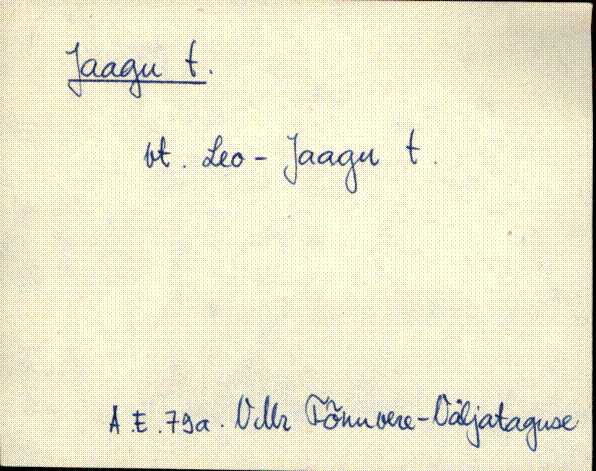 Jaagu t.
vt. Leo-Jaagu t.
A.E. 79a. Vdlr Tõnuvere-Väljataguse